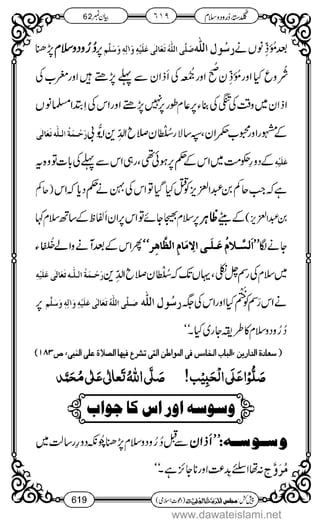 گلدستۂ درود و سلام ۶۱۹ بیان نمبر:62
بعد مؤذنوں نے رسول اللہ صَلَّی اللہُ تَعَالٰی عَلَیْہِ وَاٰلِہٖ وَسَلَّمَ پر دُرُود وسلام پڑھنا
شروع کیا اور مؤذن صبح اور جمعہ کی اذان سے پہلے پڑھتے ہیں اور مغرب کی
اذان میں وقت کی تنگی کی بناء پر عام طور پر نہیں پڑھتے اور اس کی ابتدا مسلمانوں
کے مشہور اور محبوب حکمران، سپہ سالار سلطان صلاح الدین ایوبی رَحْمَۃُ اللہِ تَعَالٰی
عَلَیْہِ کے دورِ حکومت میں اس کے حکم پر ہوئی تھی، رہی اس سے پہلے کی بات تو وہ یہ
ہے کہ جب حاکم بن عبدالعزیز کو قتل کیا گیا تو اس کی بہن نے حکم دیا کہ اس (حاکم
بن عبدالعزیز) کے بیٹے ظاہر پر سلام بھیجا جائے تو اس پر ان الفاظ کے ساتھ سلام کہا
جانے لگا ”اَلسَّلَامُ عَلَی الْاِمَامِ الظَّاہِرِ“ پھر اس کے بعد آنے والے خلفاء
میں سلام کی یہ رسم چل نکلی، یہاں تک کہ سلطان صلاح الدین رَحْمَۃُ اللہِ تَعَالٰی عَلَیْہِ
نے اس رسم کو ختم کیا اور اس کی جگہ رسول اللہ صَلَّی اللہُ تَعَالٰی عَلَیْہِ وَاٰلِہٖ وَسَلَّمَ پر
دُرُود وسلام کا طریقہ جاری کیا۔“
(سعادۃ الدارین، الباب الخامس فی المواطن التی تشرع فیھا الصلاۃ علی النبی، ص۱۸۳)
صَلُّوْا عَلَی الْحَبِیْب! صَلَّی اللہُ تَعَالٰی عَلٰی مُحَمَّد
وسوسہ اور اس کا جواب
وسوسہ: ”اذان سے قبل دُرُود وسلام پڑھنا چونکہ دورِ رسالت میں
مُرَوَّج نہ تھا اس لئے بدعت اور ناجائز ہے۔“
619
www.dawateislami.net